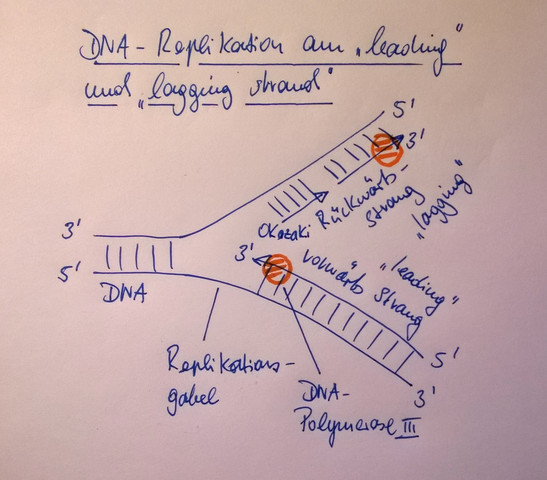 DNA-Replikation am „leading"
und „lagging strand"
5'
3'
Rückwärts-
strang
„lagging"
Okazaki
3'
5'
DNA
3'
vorwärts
strang
„leading"
5'
3'
Replikations-
gabel
DNA-
Polymerase III